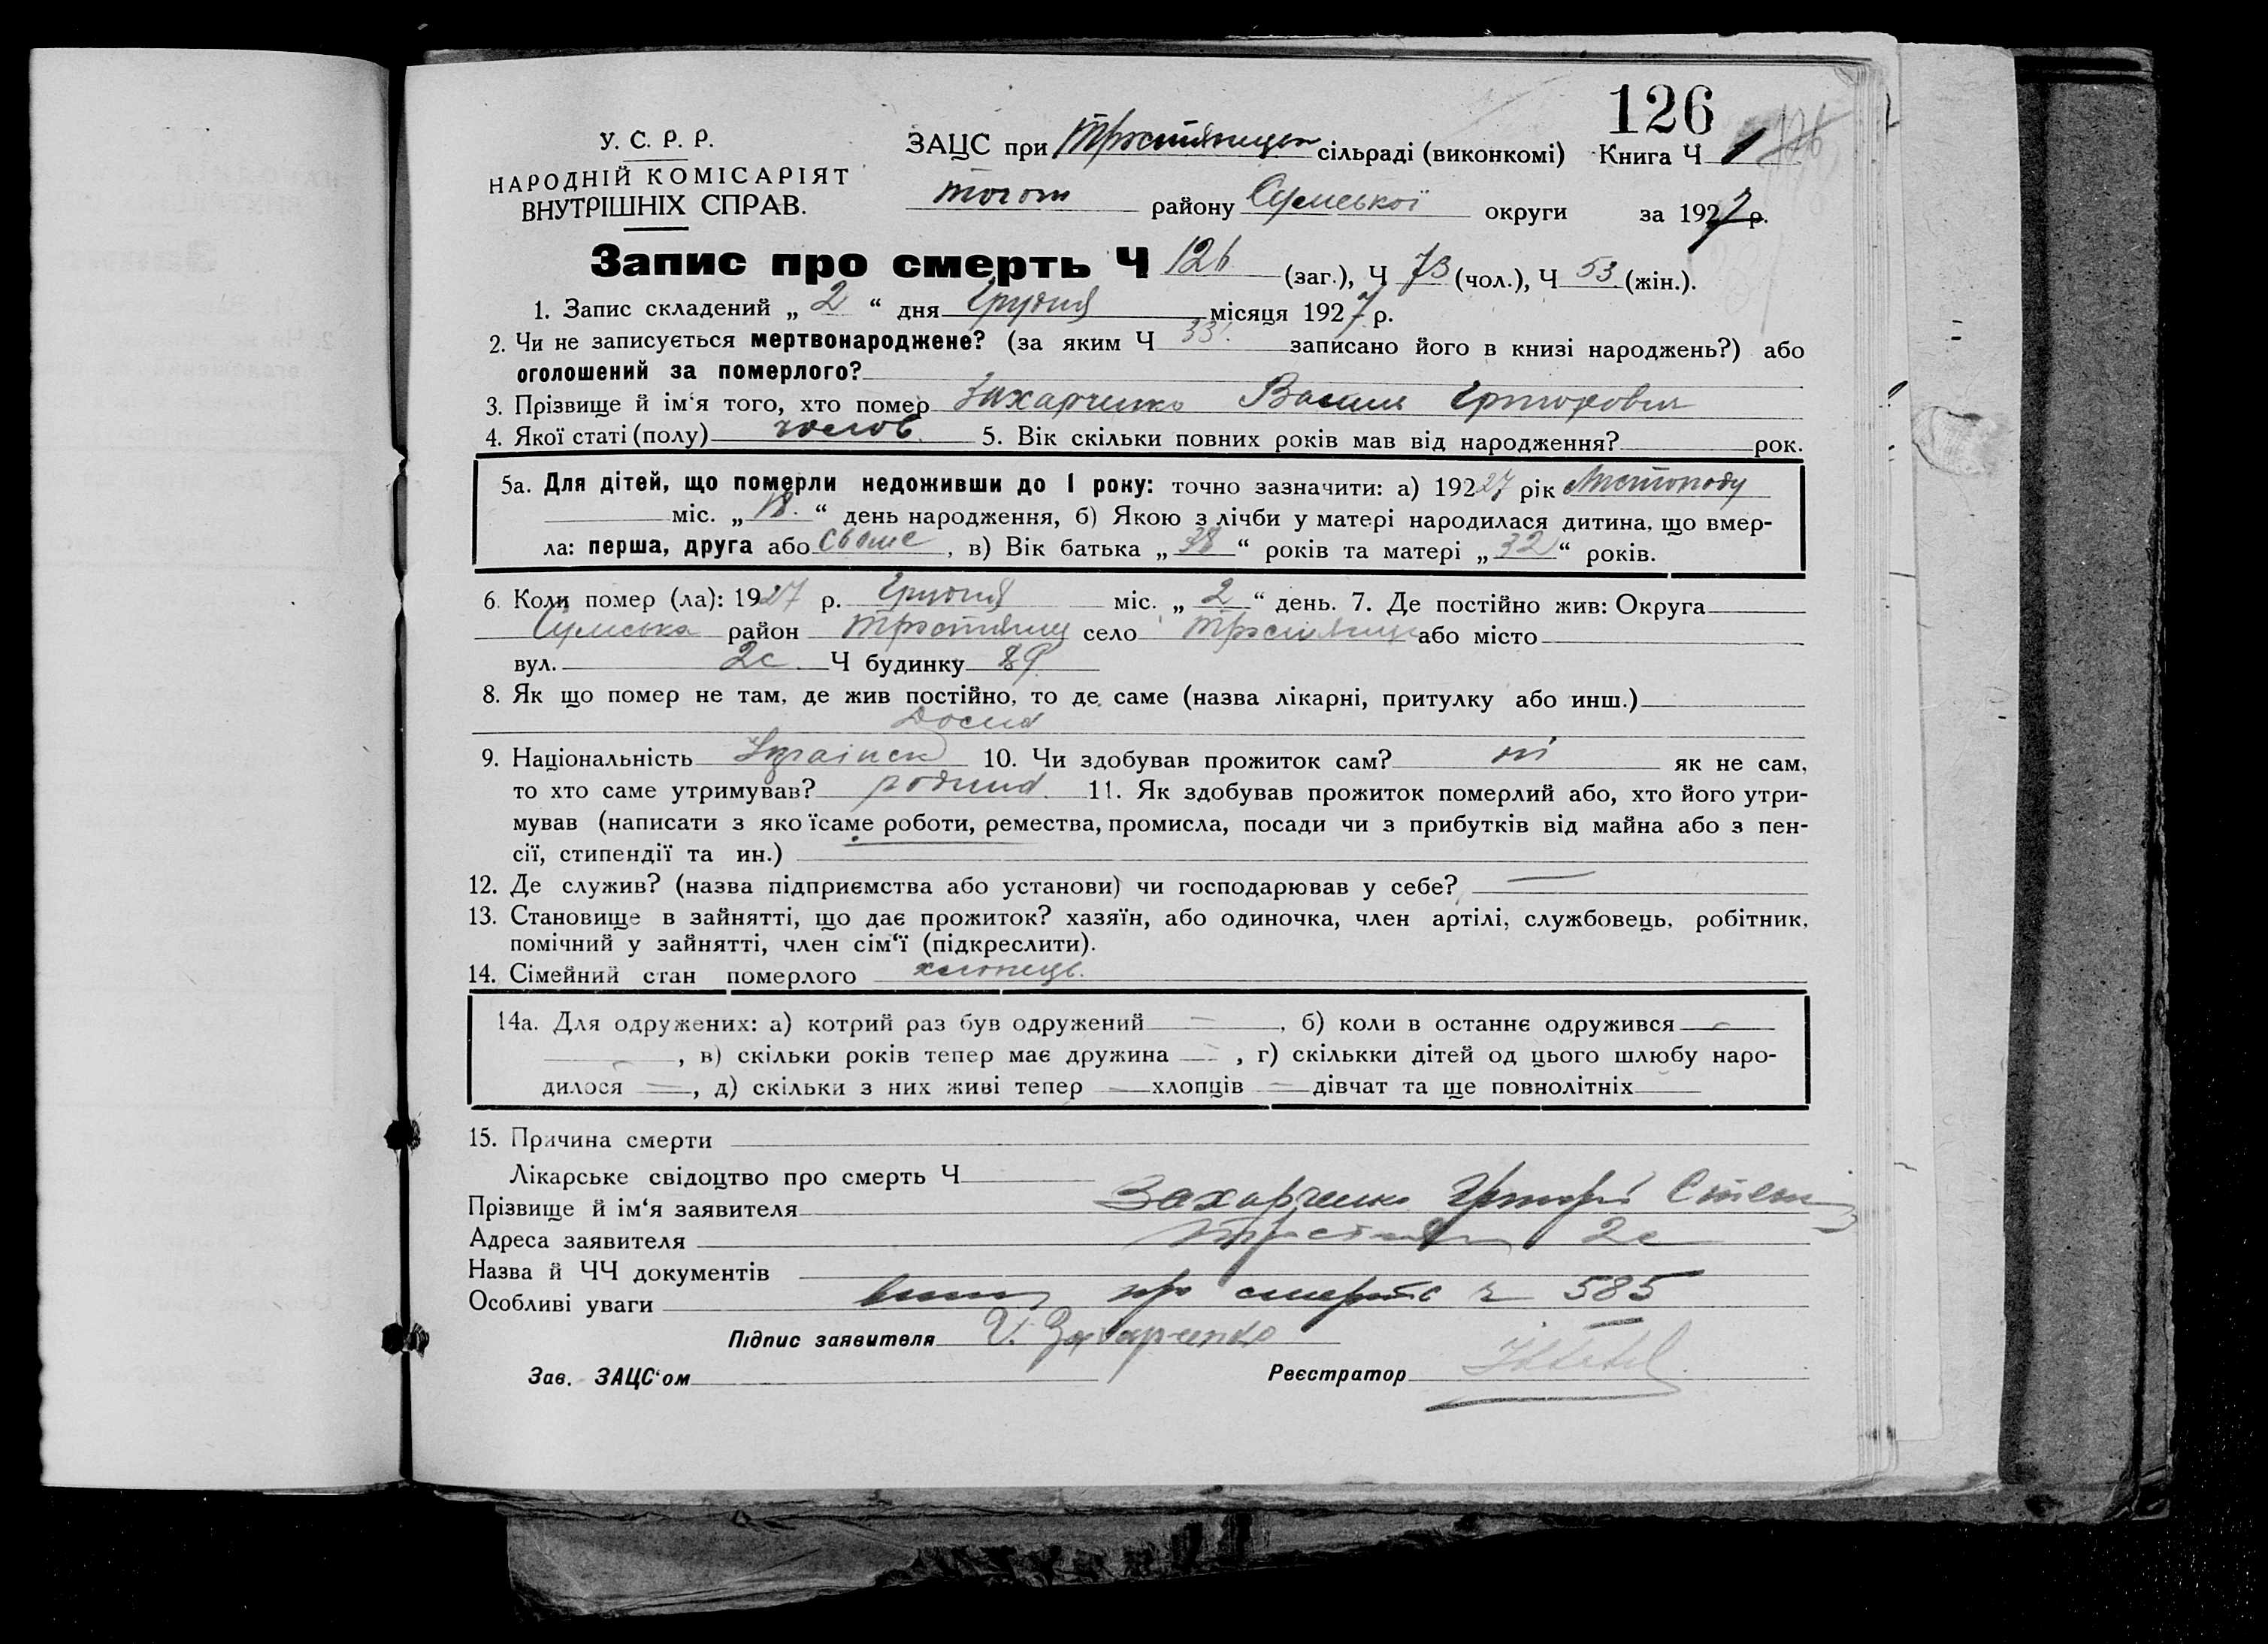 126
У. С. Р. Р.
НАРОДНІЙ КОМІСАРІЯТ
ВНУТРІШНІХ СПРАВ.
ЗАЦС при Тростянецьк сільраді (виконкомі) Книга Ч 1
того ж району Сумської округи за 1927 р.
Запис про смерть Ч 126 (заг.), Ч 73 (чол.), Ч 53 (жін.).
1. Запис складений „ 2 “ дня Грудня місяця 1927 р.
2. Чи не записується мертвонароджене? (за яким Ч 33 записано його в книзі народжень?) або
оголошений за померлого?
3. Прізвище й ім‘я того, хто помер Захарченко Василь Григорович
4. Якої статі (полу) чолов. 5. Вік скільки повних років мав від народження? рок.
5а. Для дітей, що померли недоживши до 1 року: точно зазначити: а) 19227 рік Листопаду
міс. „ 18. “ день народження, б) Якою з лічби у матері народилася дитина, що вмер-
ла: перша, друга або , в) Вік батька „ 38 “ років та матері „ 32 “ років.
6. Коли помер (ла): 1927 р. Грудня міс. „ 2 “ день. 7. Де постійно жив: Округа
Сумська район Тростянець село Тростянець або місто
вул. 2с Ч будинку 89
8. Як що помер не там, де жив постійно, то де саме (назва лікарні, притулку або инш.)
Дома
9. Національність Українск 10. Чи здобував прожиток сам? ні як не сам,
то хто саме утримував? родина 11. Як здобував прожиток померлий або, хто його утри-
мував (написати з якоїсаме роботи, ремества, промисла, посади чи з прибутків від майна або з пен-
сії, стипендії та ин.)
12. Де служив? (назва підприємства або установи) чи господарював у себе? —
13. Становище в зайнятті, що дає прожиток? хазяїн, або одиночка, член артілі, службовець, робітник,
помічний у зайнятті, член сім‘ї (підкреслити).
14. Сімейний стан померлого хлопець.
14а. Для одружених: а) котрий раз був одружений —, б) коли в останнє одружився —
—, в) скільки років тепер має дружина —, г) скількки дітей од цього шлюбу наро-
дилося —, д) скільки з них живі тепер — хлопців — дівчат та ще повнолітніх
15. Причина смерти
Лікарське свідоцтво про смерть Ч
Прізвище й ім‘я заявителя Захарченко Григорі Степан
Адреса заявителя Тростян 2с
Назва й ЧЧ документів
Особливі уваги про смерть ч 585
Підпис заявителя Г. Захарченко
Зав. ЗАЦС‘ом Реєстратор